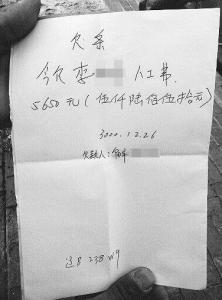 欠条
今欠李 人工费
5650元(伍仟陆佰伍拾元)
3000.12.26
欠款人: